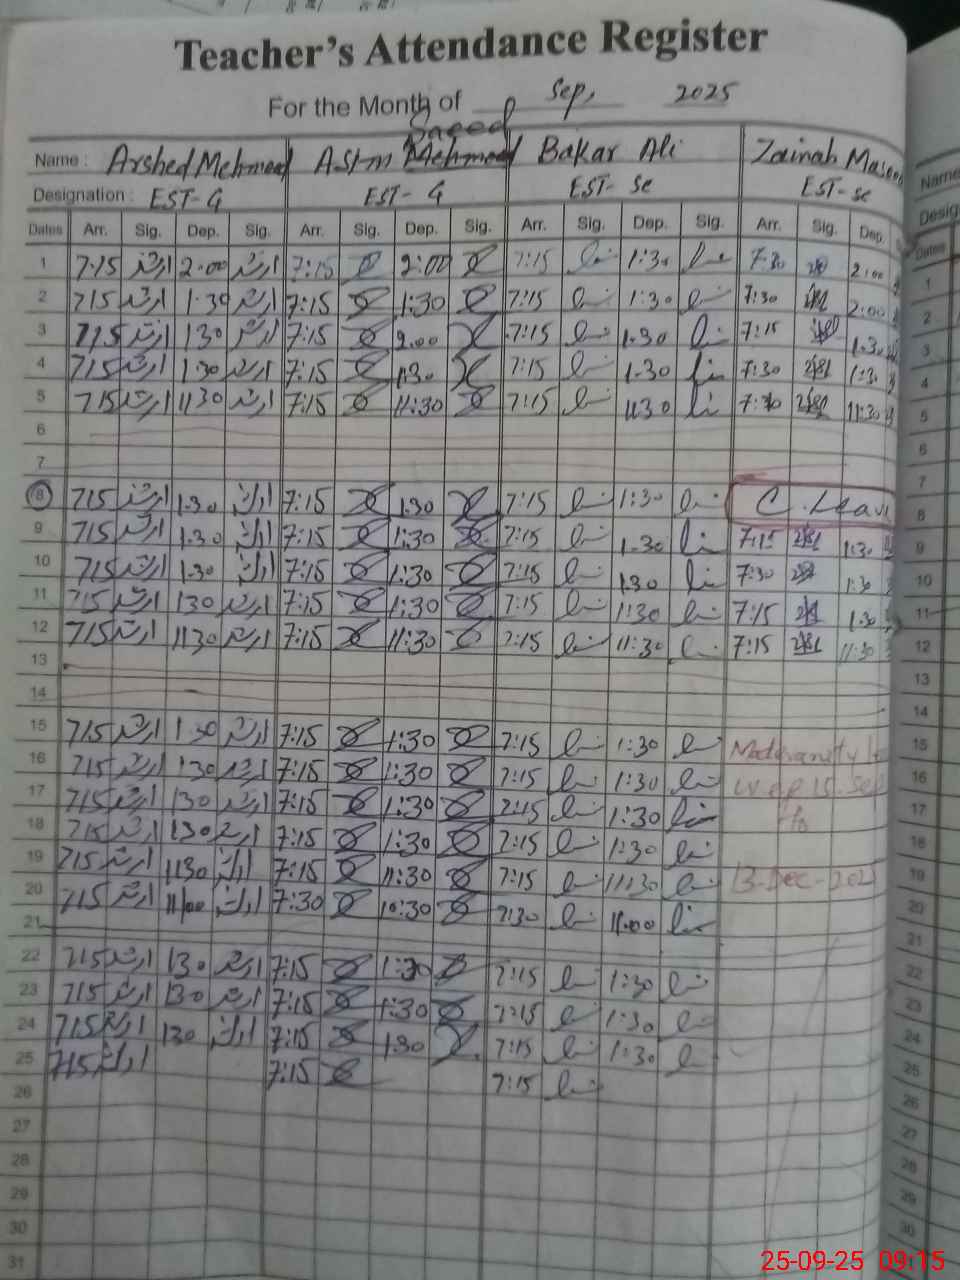 Teacher's Attendance Register
For the Month of Sep, 2025
Saeed
Name : Arshed Mehmood Asim Mehmood Bakar Ali Zainab
Designation : EST- G EST- G EST- Se EST- Se
Dates Arr. Sig. Dep. Sig. Arr. Sig. Dep. Sig. Arr. Sig. Dep. Sig. Arr. Sig. Dep.
1 7.15 ارشد 2.00 ارشد 7:15 2:00 7:15 1:30 7:30 2:00
2 715 ارشد 1.30 ارشد 7:15 1:30 7:15 1:30 7:30 2:00
3 715 ارشد 130 ارشد 7:15 2.00 7:15 1.30 7:15 1.30
4 715 ارشد 1.30 ارشد 7:15 1:30 7:15 1.30 7:30 1:30
5 715 ارشد 1130 ارشد 7:15 11:30 7:15 1130 7:30 11:30
6
7
8 715 ارشد 1.30 ارشد 7:15 1.30 7:15 1:30 C. Leave
9 715 ارشد 1.30 ارشد 7:15 1:30 7:15 1.30 7:15 1:30
10 715 ارشد 1.30 ارشد 7:15 1:30 7:15 1.30 7:30 1:30
11 715 ارشد 130 ارشد 7:15 1:30 7:15 1:30 7:15 1:30
12 715 ارشد 1130 ارشد 7:15 11:30 7:15 11:30 7:15 11:30
13
14
15 715 ارشد 1.30 ارشد 7:15 1:30 7:15 1:30
16 715 ارشد 130 ارشد 7:15 1:30 7:15 1:30 15 Sep
17 715 ارشد 130 ارشد 7:15 1:30 7:15 1:30 To
18 715 ارشد 130 ارشد 7:15 1:30 7:15 1:30
19 715 ارشد 1130 ارشد 7:15 11:30 7:15 11:30 13-Dec-2025
20 715 ارشد 1100 ارشد 7:30 10:30 7:30 11:00
21
22 715 ارشد 130 ارشد 7:15 1:30 7:15 1:30
23 715 ارشد 130 ارشد 7:15 1:30 7:15 1:30
24 715 ارشد 130 ارشد 7:15 130 7:15 1:30
25 715 ارشد 7:15 7:15
26
27
28
29
30
31
Name
Desig
Dates
1
2
3
4
5
6
7
8
9
10
11
12
13
14
15
16
17
18
19
20
21
22
23
24
25
26
27
28
29
30
25-09-25 09:15